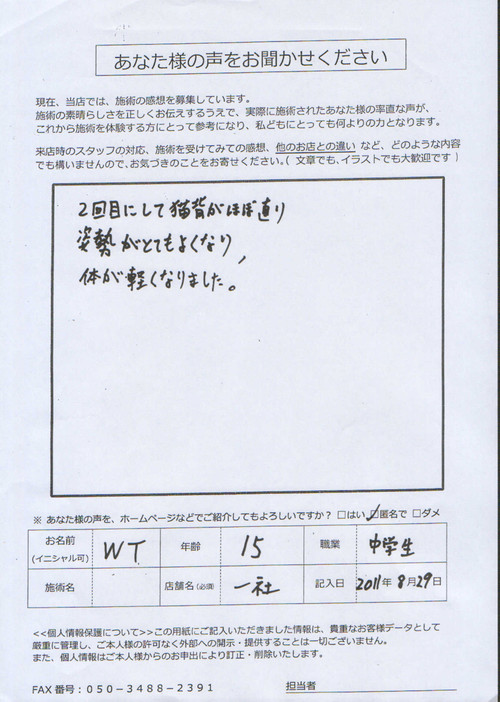 あなた様の声をお聞かせください
現在、当店では、施術の感想を募集しています。
施術の素晴らしさを正しくお伝えするうえで、実際に施術されたあなた様の率直な声が、
これから施術を体験する方にとって参考になり、私どもにとっても何よりの力となります。
来店時のスタッフの対応、施術を受けてみての感想、他のお店との違い など、どのような内容
でも構いませんので、お気づきのことをお寄せください。( 文章でも、イラストでも大歓迎です )
2回目にして猫背がほぼ直り
姿勢がとてもよくなり、
体が軽くなりました。
※ あなた様の声を、ホームページなどでご紹介してもよろしいですか? □はい ☑匿名で □ダメ
お名前 (イニシャル可) WT 年齢 15 職業 中学生
施術名 店舗名(必須) 一社 記入日 2011年 8月29日
<<個人情報保護について>>この用紙にご記入いただきました情報は、貴重なお客様データとして
厳重に管理し、ご本人様の許可なく外部への開示・提供することは一切ございません。
また、個人情報はご本人様からのお申出により訂正・削除いたします。
FAX 番号:050-3488-2391 担当者